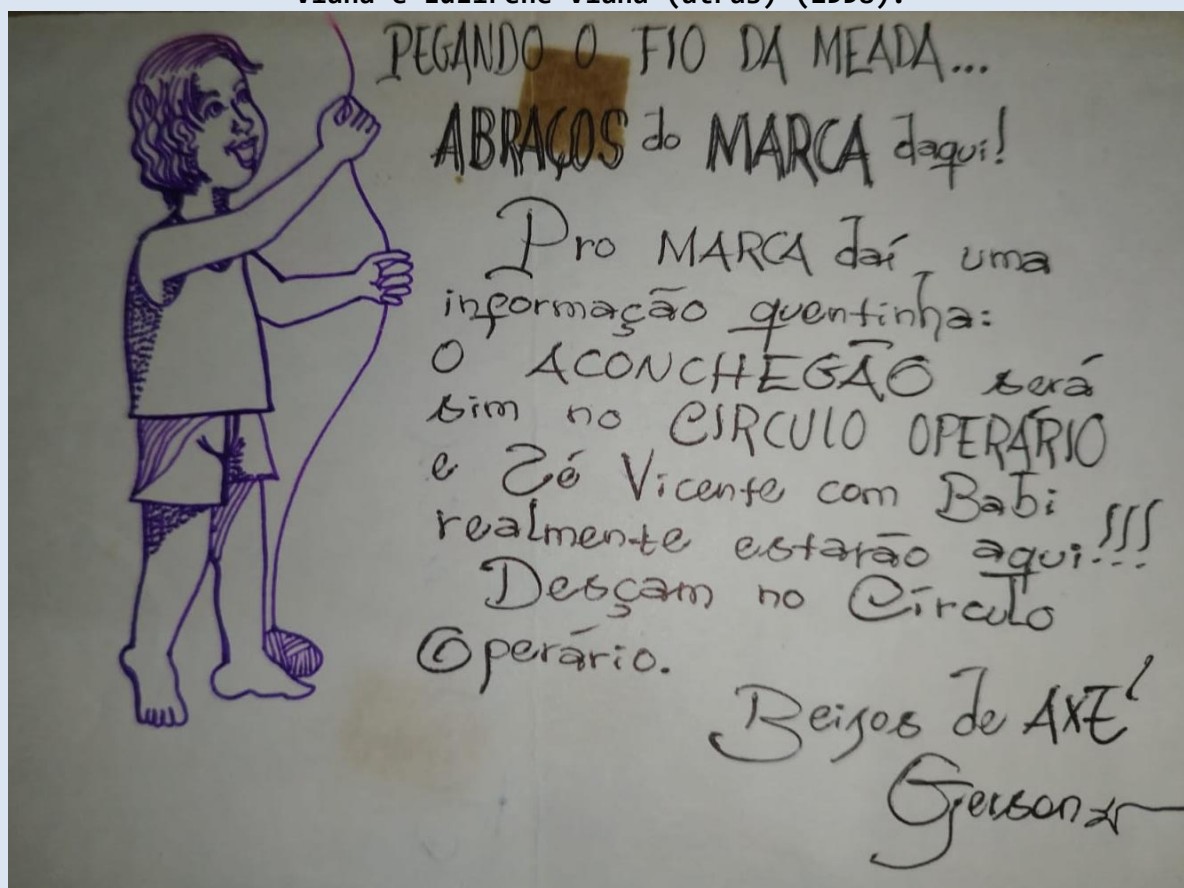 PEGANDO O FIO DA MEADA...
ABRAÇOS do MARCA daqui!
Pro MARCA daí, uma
informação quentinha:
O ACONCHEGÃO será
sim no CIRCULO OPERÁRIO
e Zé Vicente com Babi
realmente estarão aqui!!!
Desçam no Círculo
Operário.
Beijos de AXÉ!
Gerson